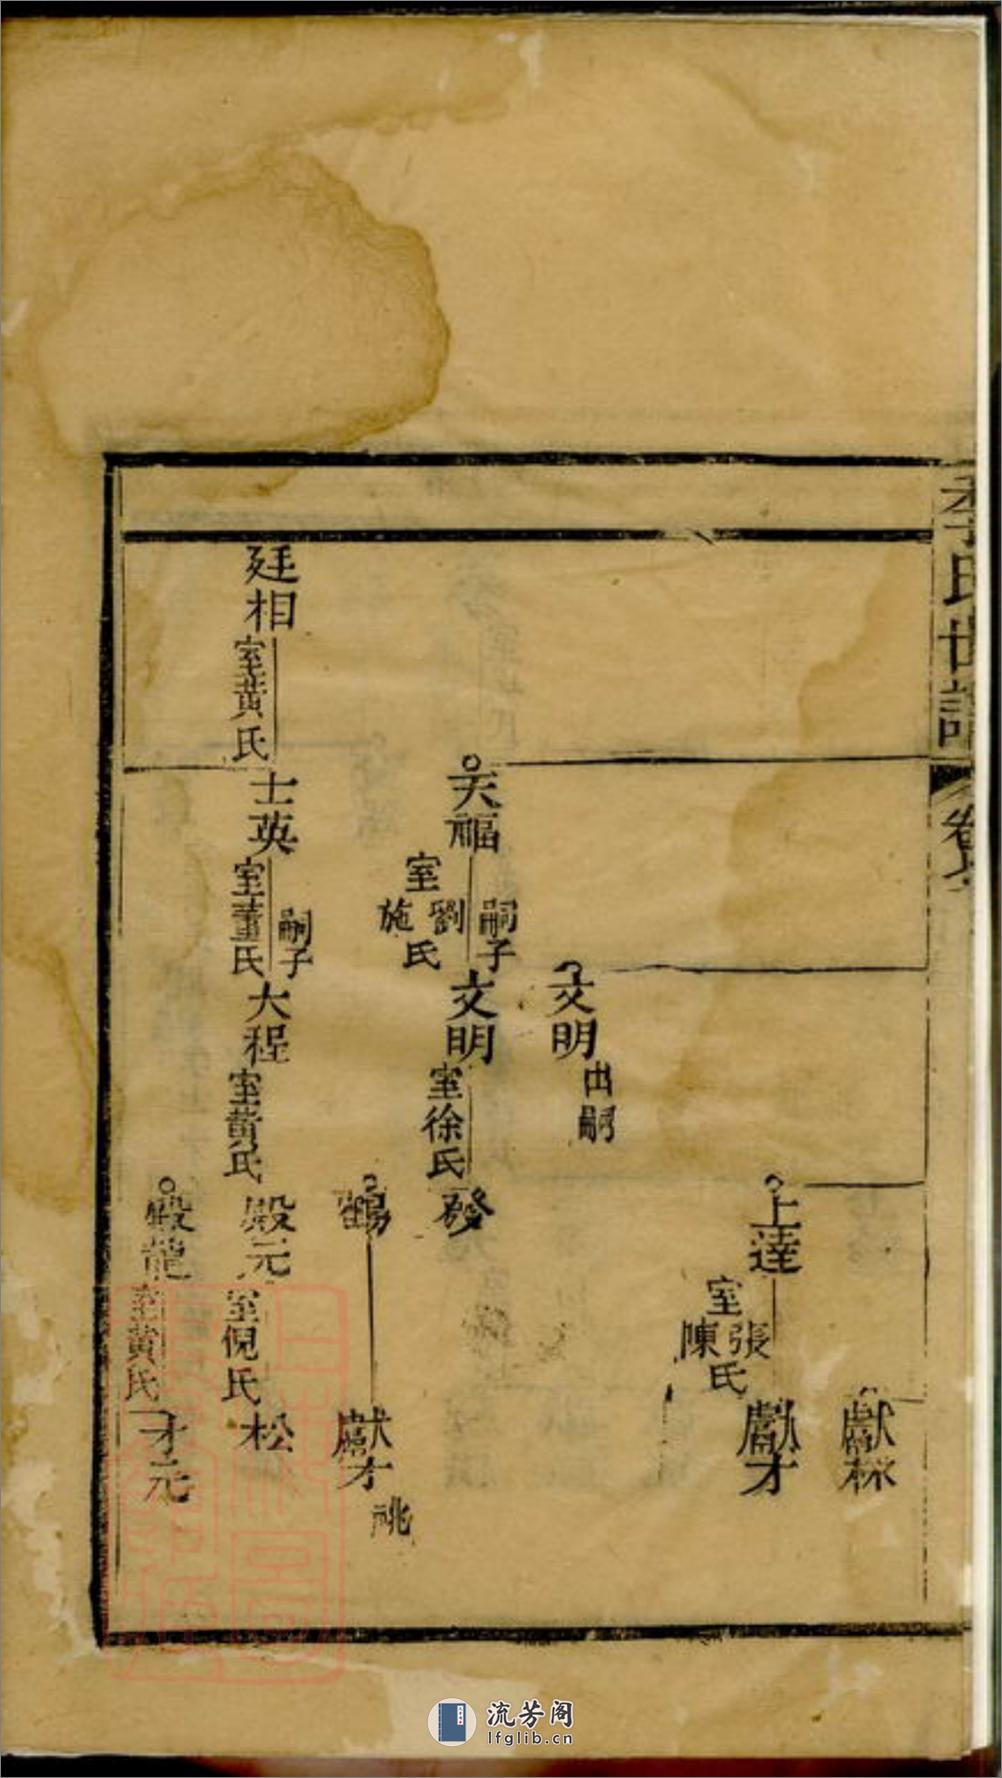 李氏世譜
卷
獻楙
上達
室張陳氏
獻才
文明
出嗣
天福
嗣子
室劉施氏
文明
室徐氏
發
鶴
獻才
祧
廷相
室黃氏
士英
嗣子
室董氏
大程
室黃氏
殿元
室倪氏
松
殿龍
室黃氏
才元
流芳阁
lfglib.cn